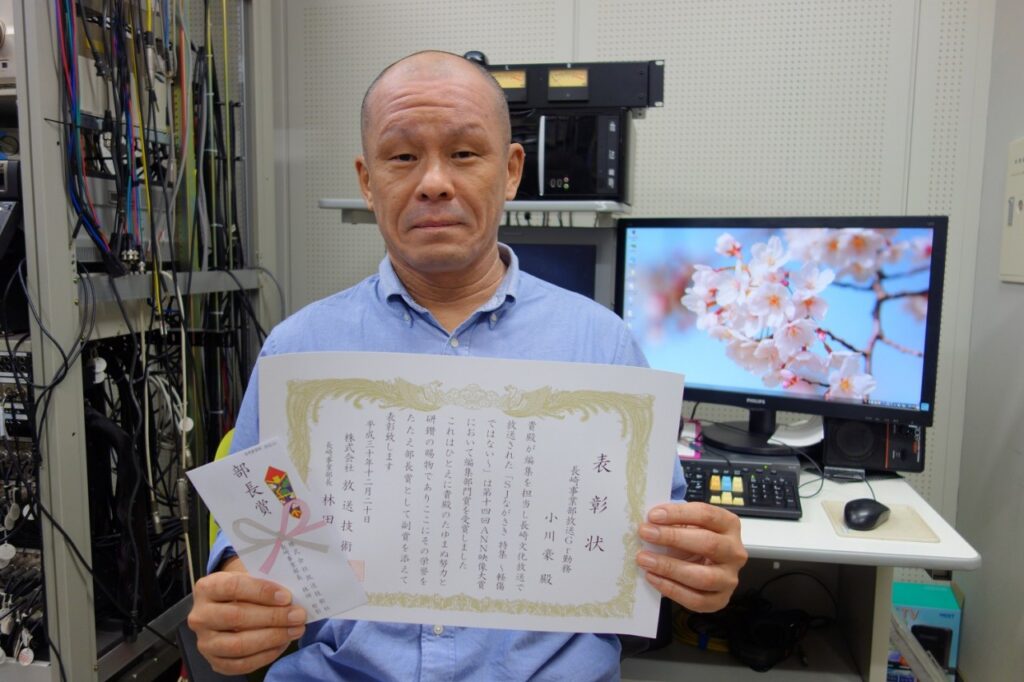 表彰状
長崎事業部放送Gr勤務
小川豪 殿
貴殿が編集を担当し長崎文化放送で
放送された「SJながさき特集 ~軽傷
ではない~」は第十四回ANN映像大賞
において編集部門賞を受賞しました
これはひとえに貴殿のたゆまぬ努力と
研鑽の賜物でありここにその栄誉を
たたえ部長賞として副賞を添えて
表彰致します
平成三十年十二月二十日
株式会社 放送技術
長崎事業部長 林田
部長賞
PHILIPS